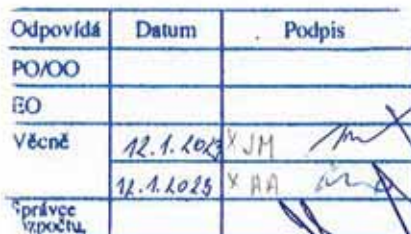 Odpovídá Datum Podpis
PO/OO
EO
Věcně 12.1.2023 x JM
12.1.2023 x AA
Správce
rozpočtu,